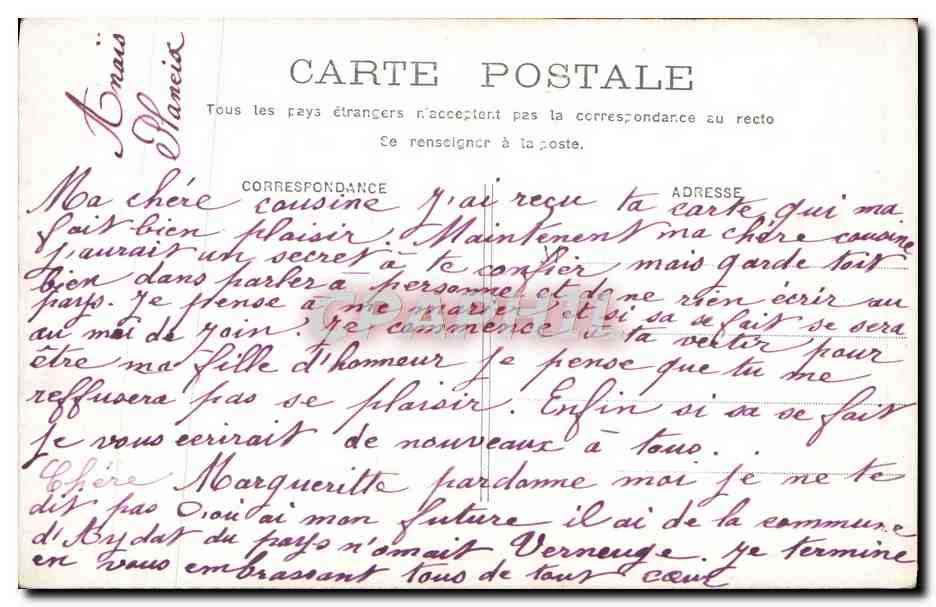 Anaïs
Plancix
CARTE POSTALE
Tous les pays étrangers n'acceptent pas la correspondance au recto
Se renseigner à la poste.
CORRESPONDANCE
ADRESSE
Ma chére cousine J'ai reçu ta carte qui ma
fait bien plaisir. Maintenent ma chére cousine
j'aurait un secret à te confier mais garde toit
bien dans parler à personne et de ne rien écrir au
pays. Je pense à me marier et si sa se fait se sera
au moi de Join, Je commence à ta vertir pour
être ma fille d'honneur je pense que tu me
reffusera pas se plaisir. Enfin si sa se fait
je vous ecrirait de nouveaux à tous.
Chére Margueritte pardonne moi je ne te
dit pas D'ou ai mon future il ai de la commune
d'Aydat du pays n'omait Verneuge. Je termine
en vous embrassant tous de tout cœur
CPAPHIL